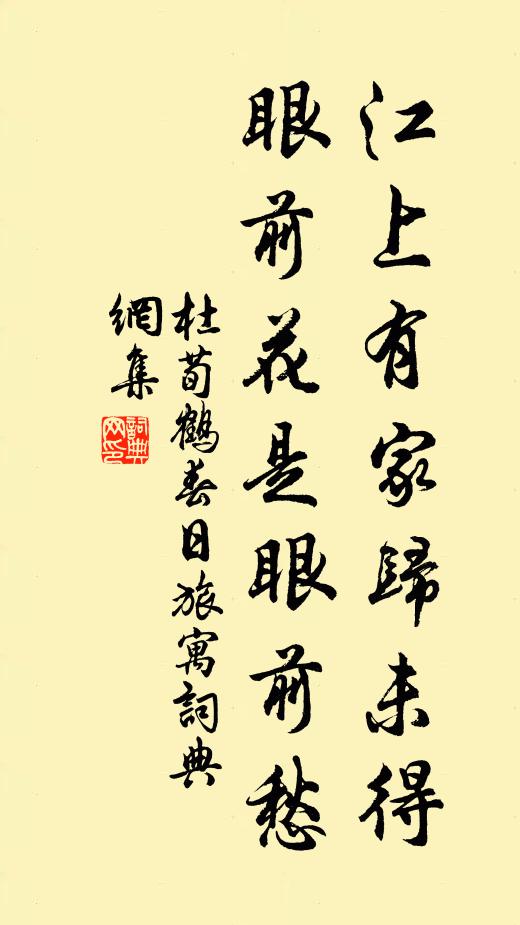 江上有家歸未得
眼前花是眼前愁
杜荀鶴春日旅寓詞典
網集
詞典
网印